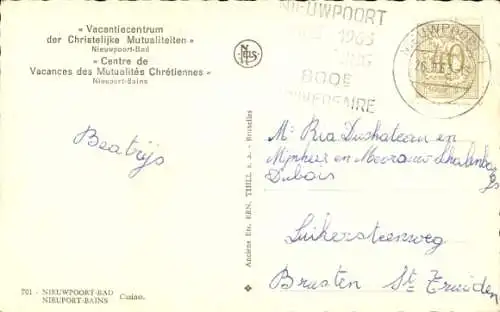 « Vacantiecentrum
der Christelijke Mutualiteiten »
Nieuwpoort-Bad
« Centre de
Vacances des Mutualités Chrétiennes »
Nieuport-Bains
NIEUWPOORT
1963
800e
NIEUWPOORT
26
40
Beatrijs
Anciens Ets. ERN. THILL s. a. - Bruxelles
Mr Ria Duchateau en
Mijnheer en Mevrouw
Dubois
Luikersteenweg
Brusten St Truiden
701 - NIEUWPOORT-BAD
NIEUPORT-BAINS Casino.